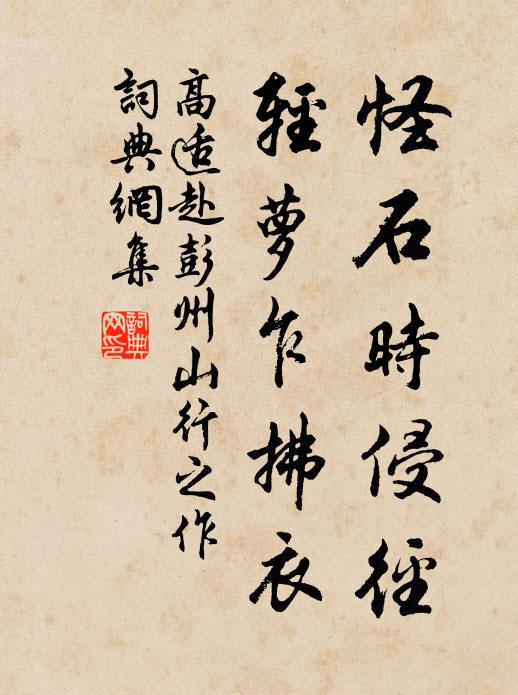 怪石時侵徑
輕蘿乍拂衣
高适赴彭州山行之作
詞典網集
詞典网印